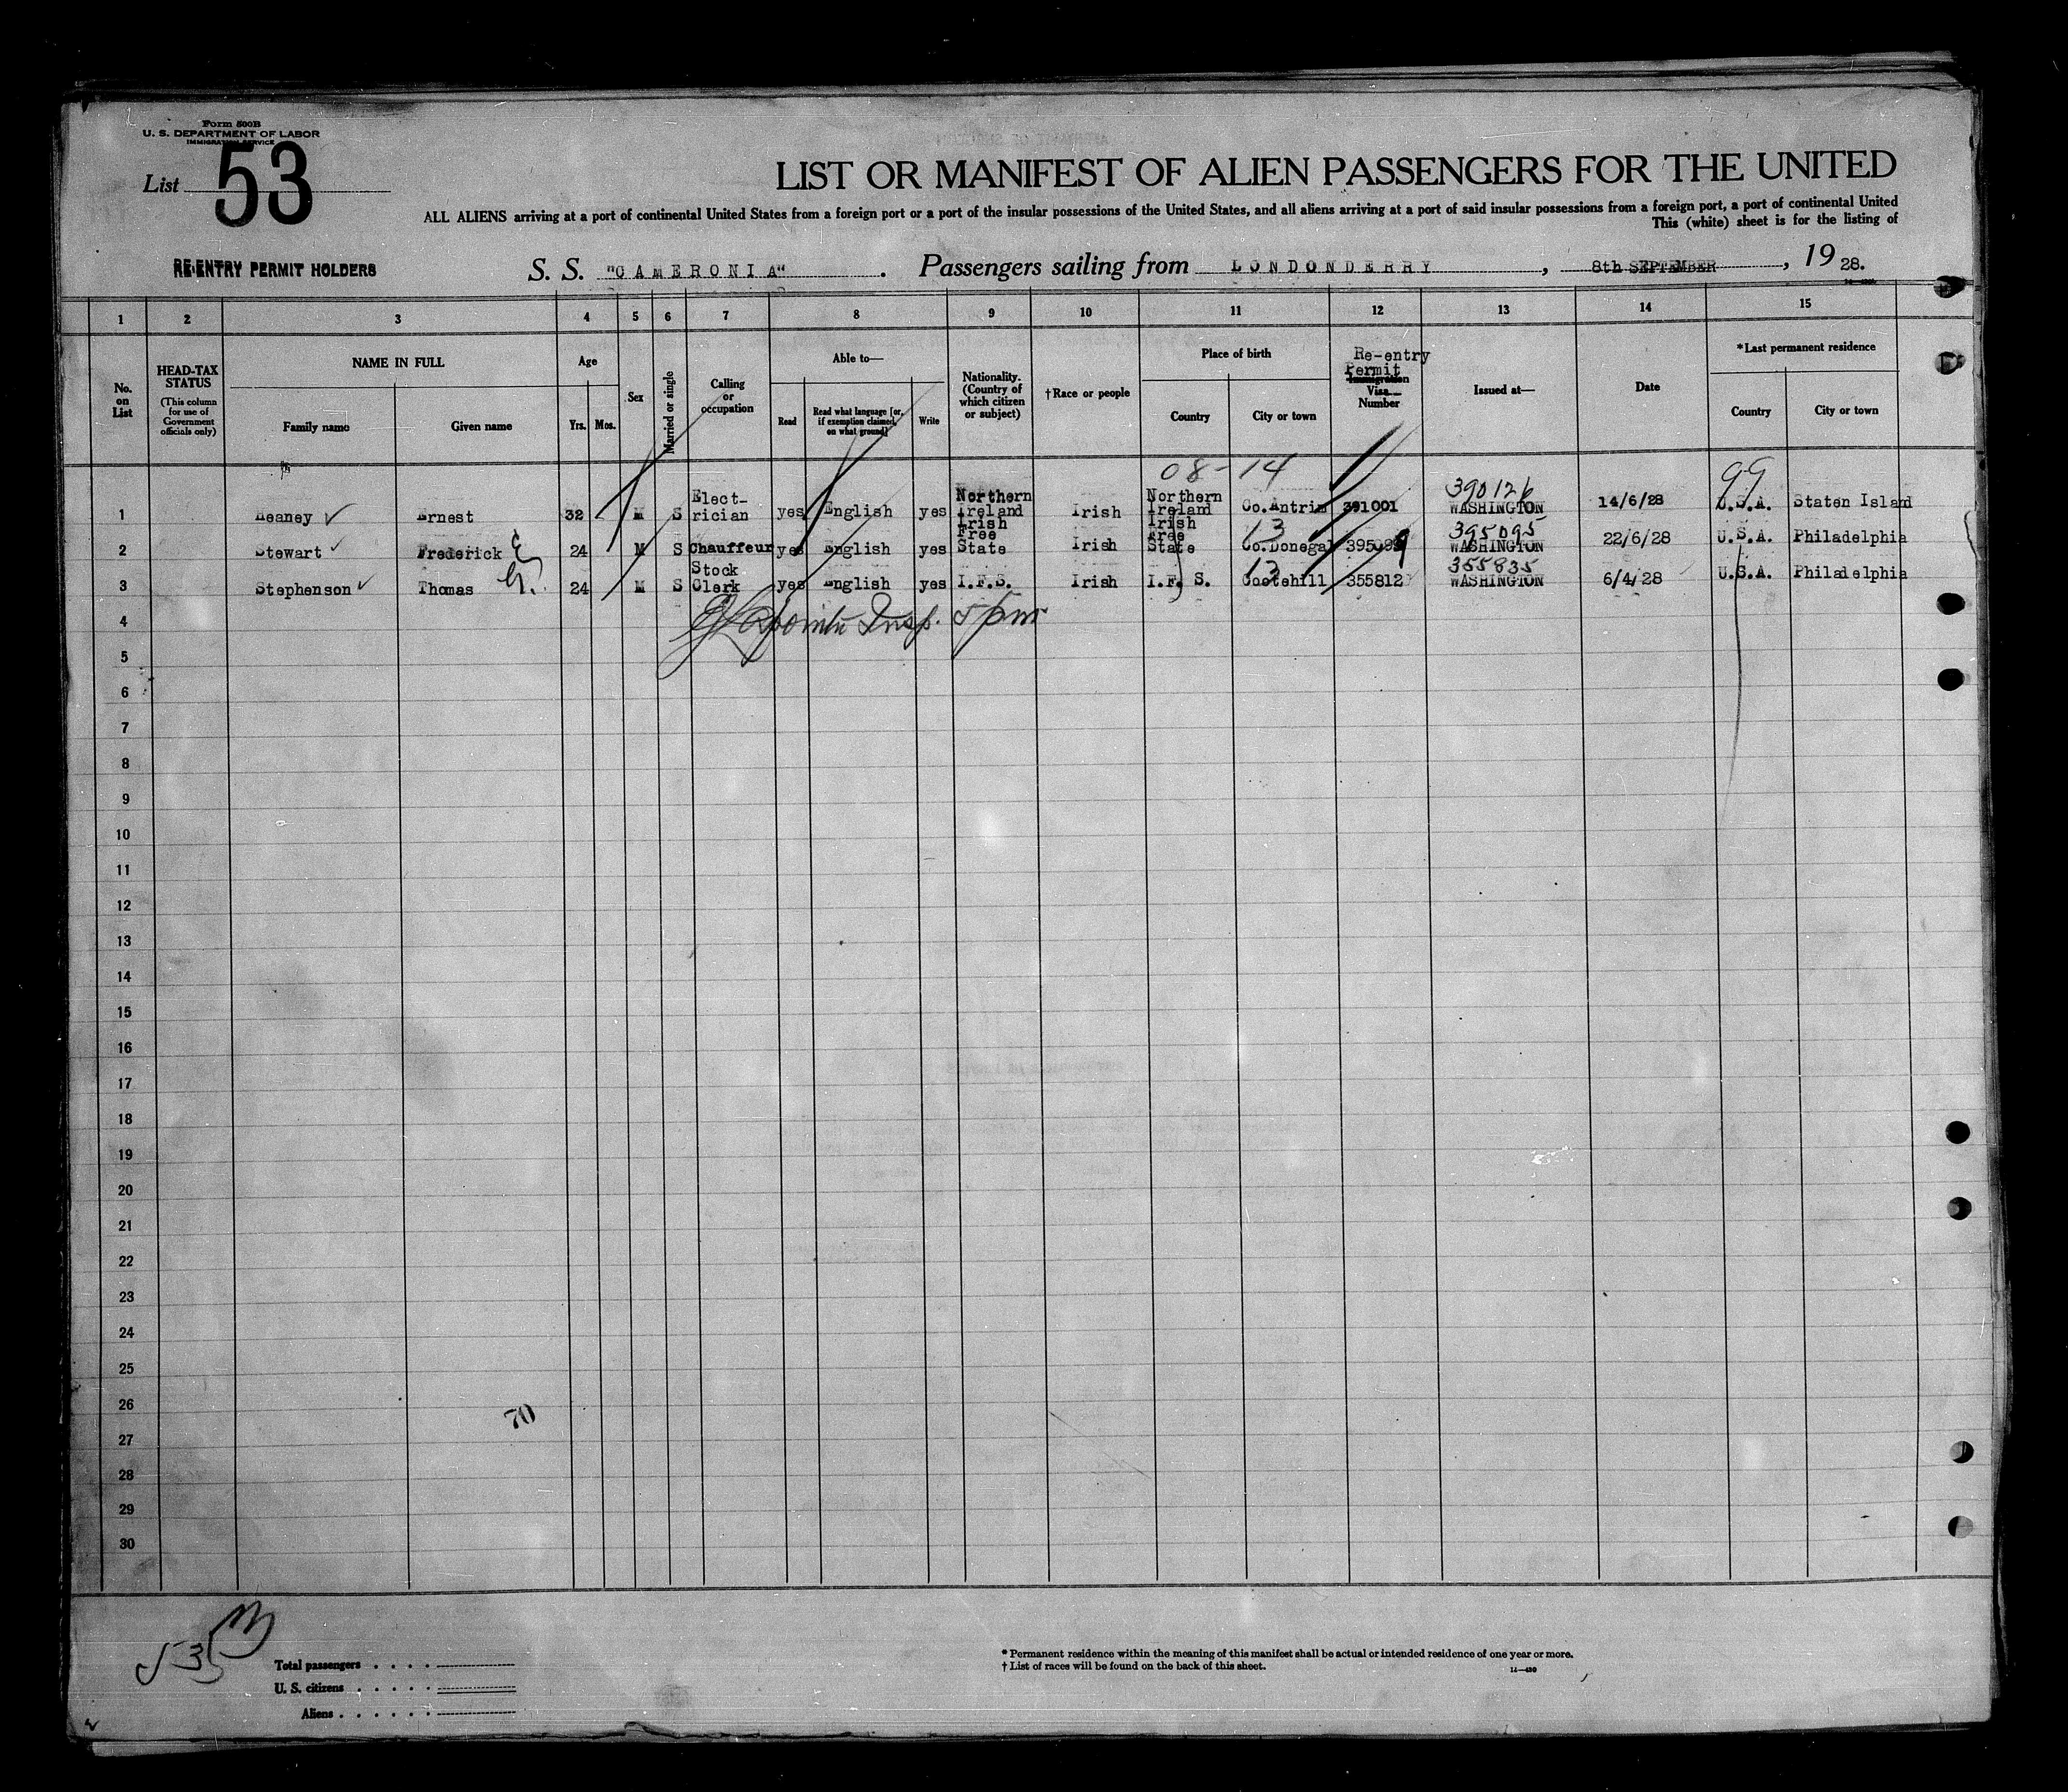 Form 500B
U. S. DEPARTMENT OF LABOR
IMMIGRATION SERVICE
List 53
LIST OR MANIFEST OF ALIEN PASSENGERS FOR THE UNITED
ALL ALIENS arriving at a port of continental United States from a foreign port or a port of the insular possessions of the United States, and all aliens arriving at a port of said insular possessions from a foreign port, a port of continental United
This (white) sheet is for the listing of
RE-ENTRY PERMIT HOLDERS S. S. "CAMERONIA" . Passengers sailing from LONDONDERRY , 8th SEPTEMBER , 19 28.
1 2 3 4 5 6 7 8 9 10 11 12 13 14 15
No. on List
HEAD-TAX STATUS
(This column for use of Government officials only)
NAME IN FULL
Family name Given name
Age
Yrs. Mos.
Sex
Married or single
Calling or occupation
Able to—
Read Read what language [or, if exemption claimed, on what ground] Write
Nationality. (Country of which citizen or subject)
†Race or people
Place of birth
Country City or town
Re-entry Permit
Immigration Visa Number
Issued at—
Date
*Last permanent residence
Country City or town
08-14 99
390126
1 Heaney Ernest 32 M S Elect-rician yes English yes Northern Ireland Irish Northern Ireland Co.Antrim 391001 WASHINGTON 14/6/28 U.S.A. Staten Island
13 395095
2 Stewart Frederick 24 M S Chauffeur yes English yes Irish Free State Irish Irish Free State Co.Donegal WASHINGTON 22/6/28 U.S.A. Philadelphia
13 355835
3 Stephenson Thomas G. 24 M S Stock Clerk yes English yes I.F.S. Irish I.F.S. Cootehill 355812 WASHINGTON 6/4/28 U.S.A. Philadelphia
4 Insp. 5 pm
5
6
7
8
9
10
11
12
13
14
15
16
17
18
19
20
21
22
23
24
25
26
70
27
28
29
30
53
Total passengers . . . .
U. S. citizens . . . . .
Aliens . . . . . .
* Permanent residence within the meaning of this manifest shall be actual or intended residence of one year or more.
† List of races will be found on the back of this sheet.